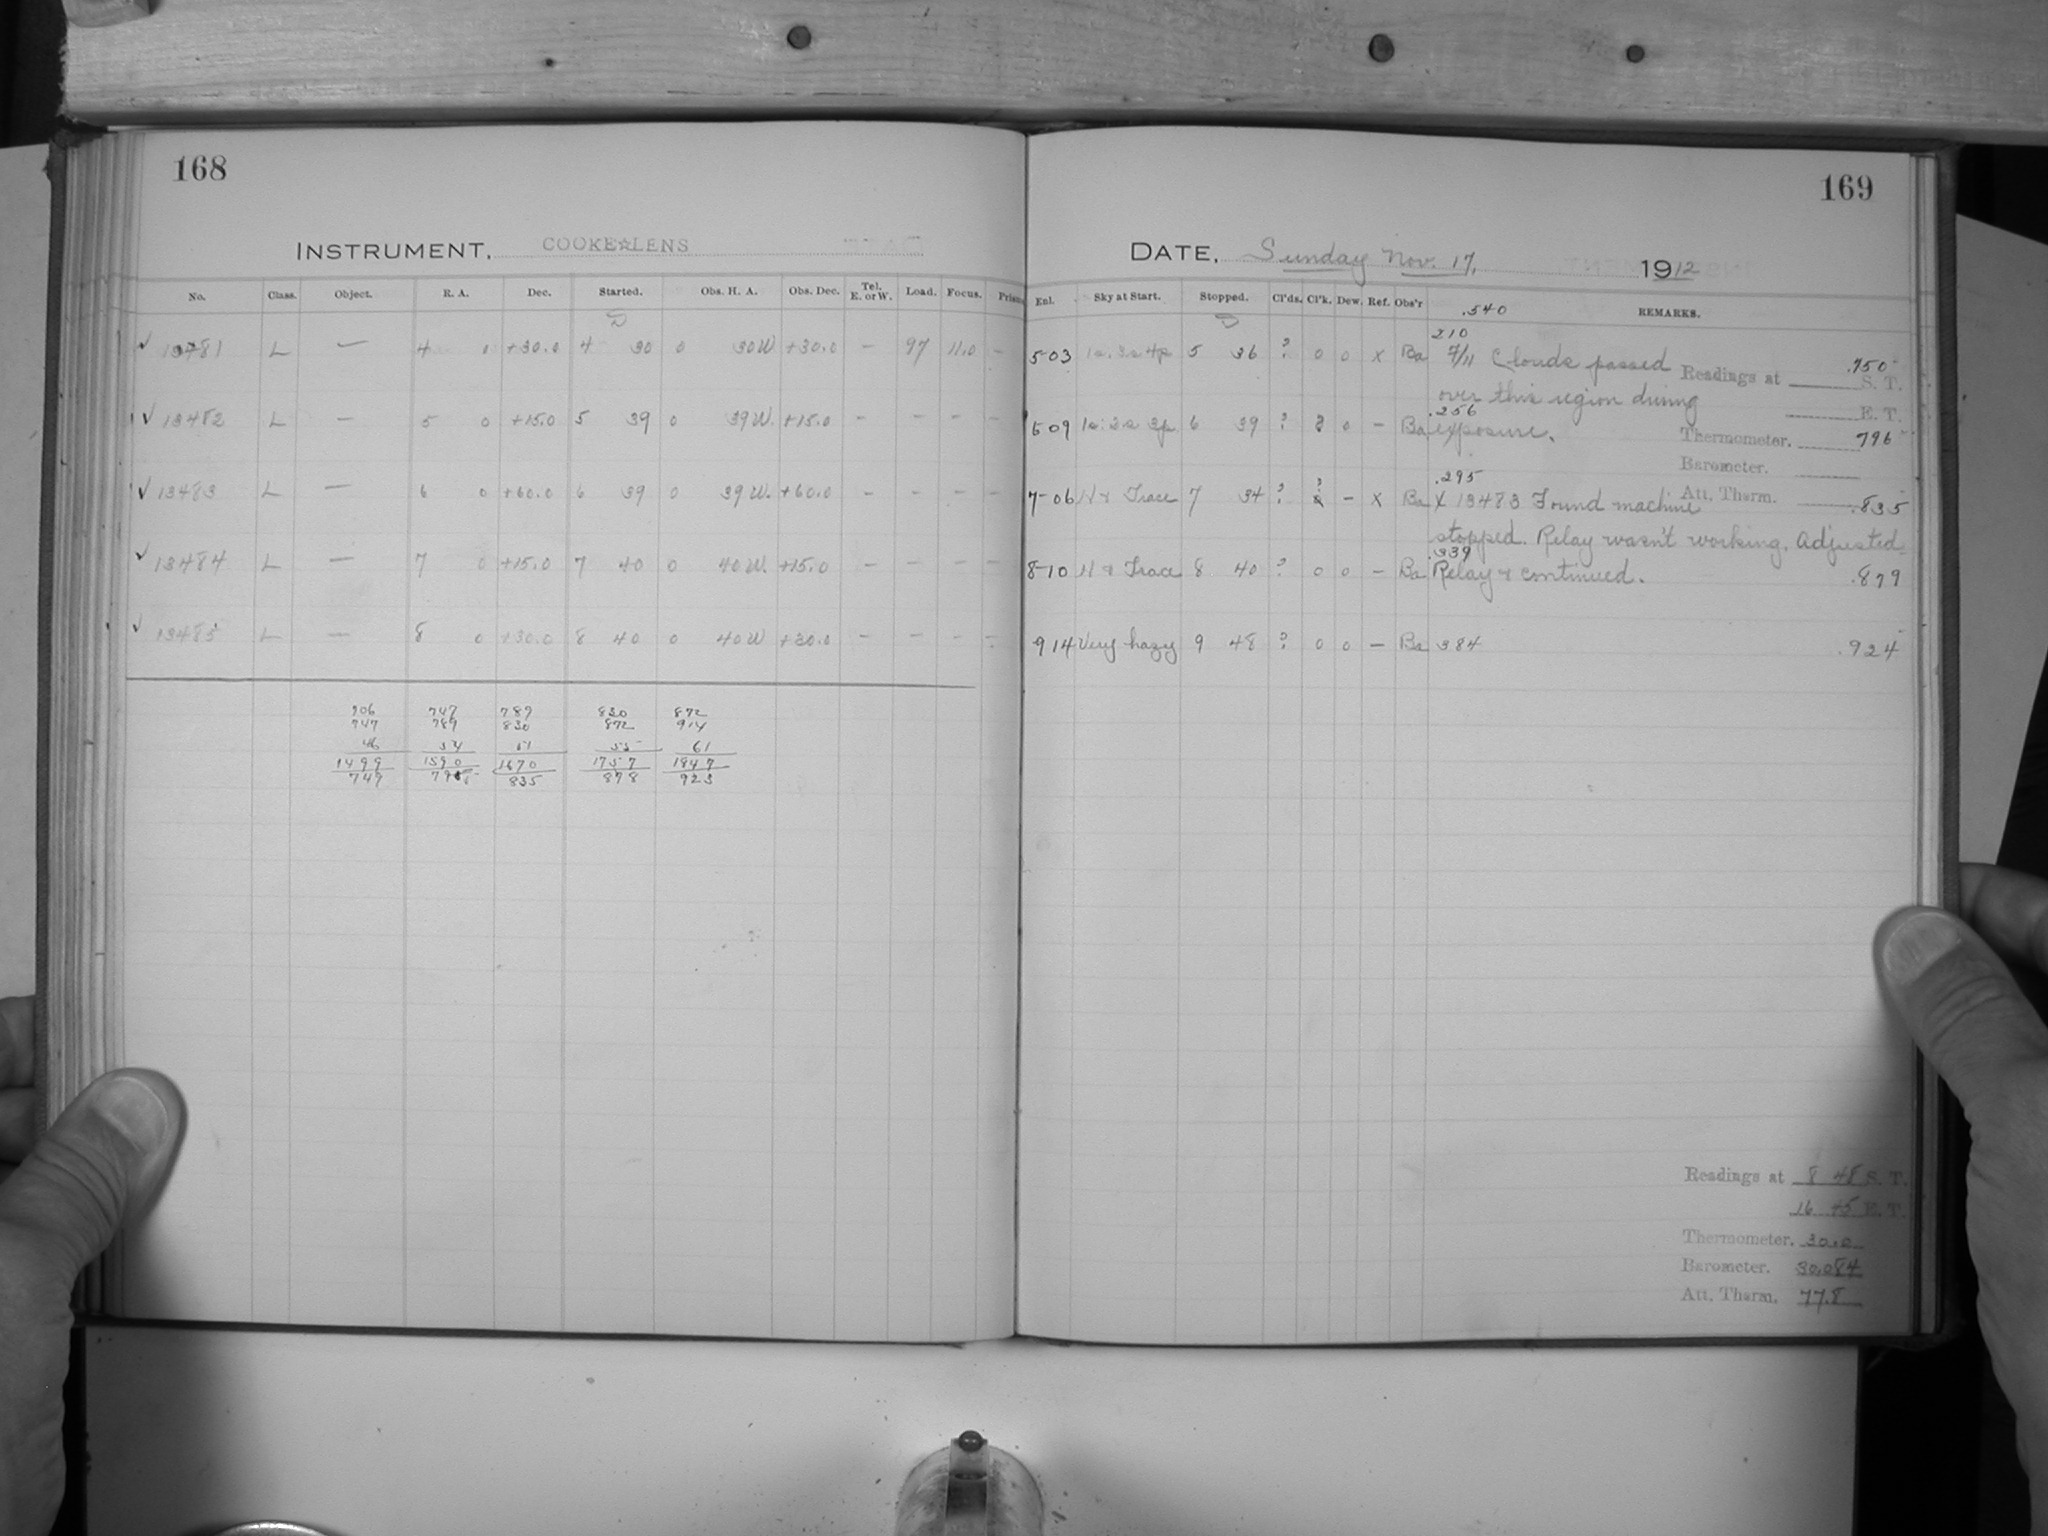 168
INSTRUMENT. COOKE☆LENS
No. Class. Object. R. A. Dec. Started. Obs. H. A. Obs. Dec. Tel. E. or W. Load. Focus. Prism
✓ 13481 L — 4 0 +30.0 4 30 0 30W +30.0 — 97 11.0 —
✓ 13482 L — 5 0 +15.0 5 39 0 39W. +15.0 — — — —
✓ 13483 L — 6 0 +60.0 6 39 0 39W. +60.0 — — — —
✓ 13484 L — 7 0 +15.0 7 40 0 40W. +15.0 — — — —
✓ 13485 L — 8 0 +30.0 8 40 0 40W +30.0 — — — —
906 747 789 830 872
747 789 830 872 914
46 54 51 55 61
1499 1590 1670 1757 1847
749 795 835 878 923
169
DATE. Sunday Nov. 17. 1912
Enl. Sky at Start. Stopped. Cl'ds. Cl'k. Dew. Ref. Obs'r REMARKS.
.540
210
5-03 5 36 ? 0 0 x Ba Clouds passed
Readings at S. T. .750
over this region during
E. T.
.256
6 39 ? 0 — Ba exposure.
Thermometer. 796
Barometer.
.295
7-06 H & Trace 7 34 ? — x Ba X 13483 Found machine
Att. Therm. .835
stopped. Relay wasn't working. Adjusted
.339
8-10 H & Trace 8 40 ? 0 0 — Ba Relay & continued. .879
9 14 Very hazy 9 48 ? 0 0 — Ba 384 .924
Readings at 8 48 S. T.
16 45 E. T.
Thermometer. 30.0
Barometer. 30.084
Att. Therm. 77.8